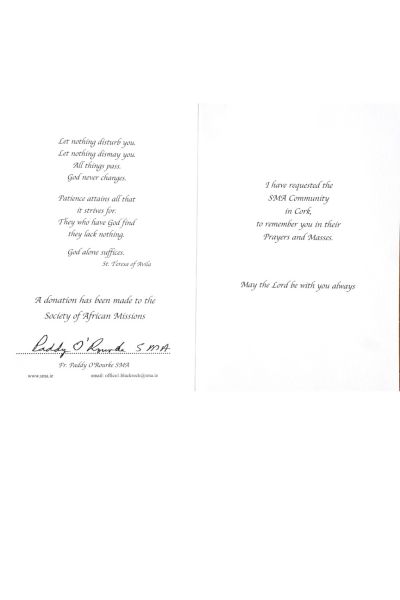 Let nothing disturb you.
Let nothing dismay you.
All things pass.
God never changes.
Patience attains all that
it strives for.
They who have God find
they lack nothing.
God alone suffices.
St. Teresa of Avila
A donation has been made to the
Society of African Missions
Paddy O'Rourke SMA
Fr. Paddy O'Rourke SMA
www.sma.ie email: office1.blackrock@sma.ie
I have requested the
SMA Community
in Cork,
to remember you in their
Prayers and Masses.
May the Lord be with you always